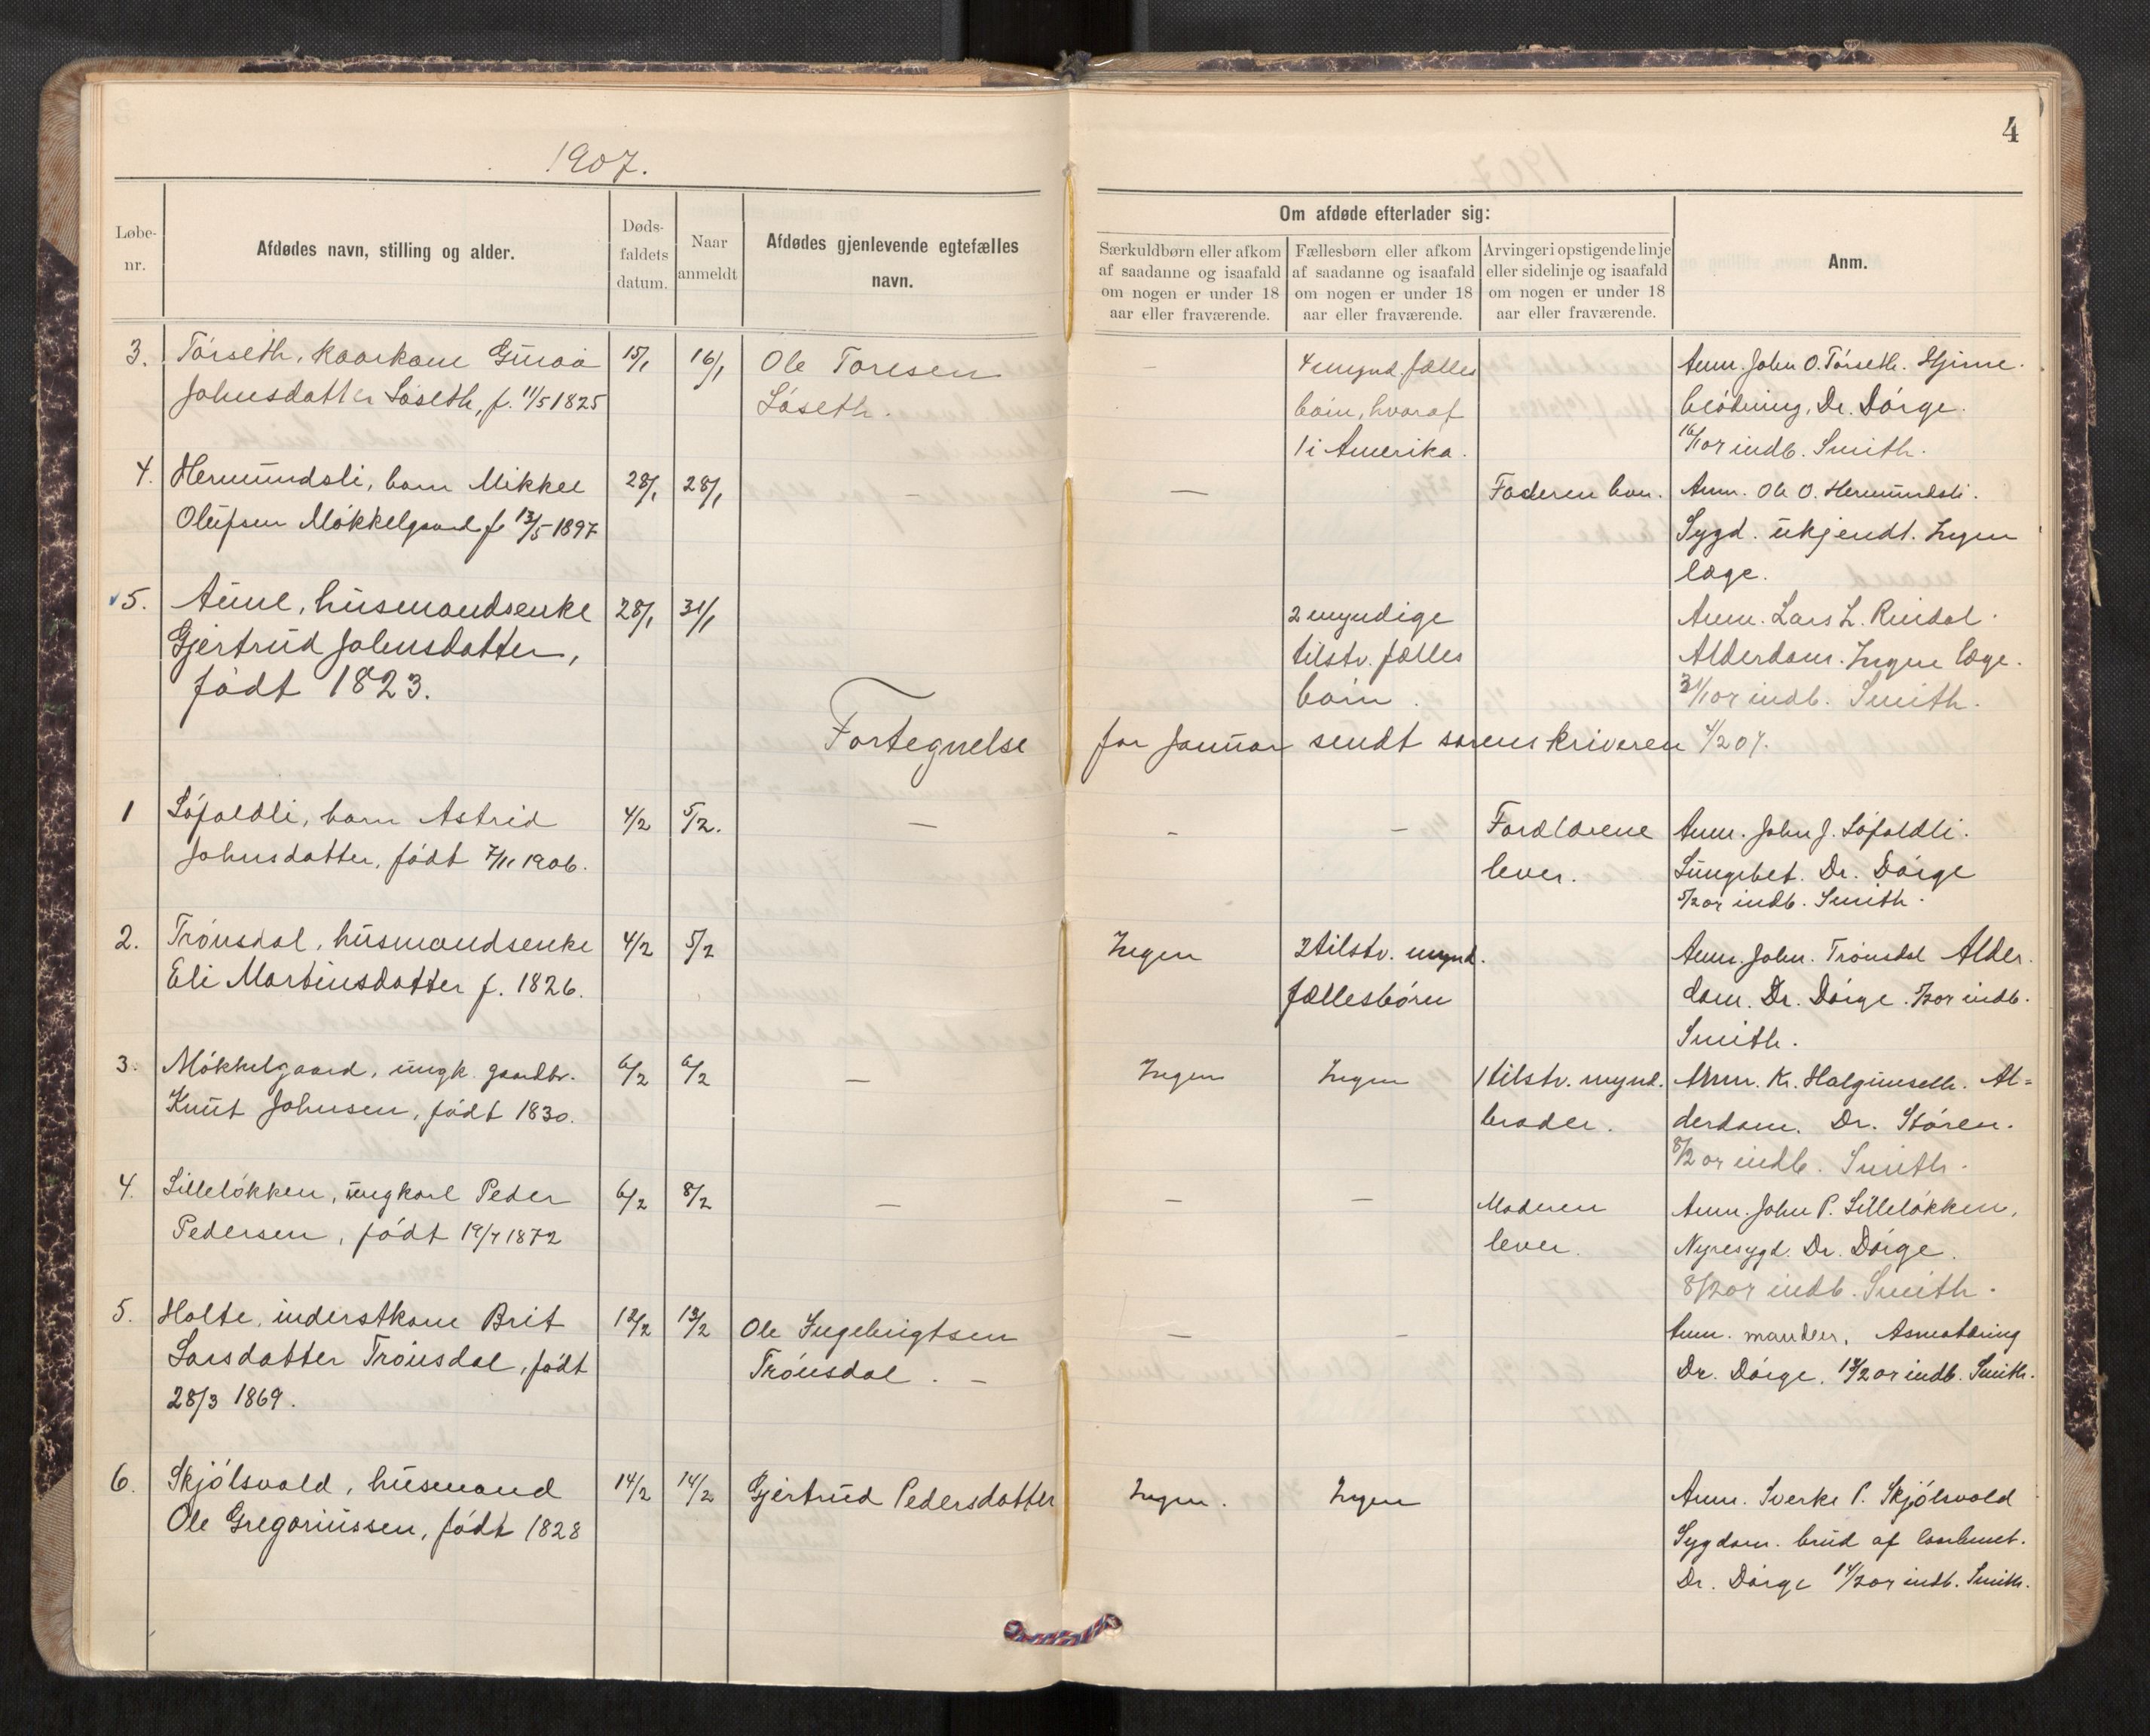 1907.
4
Løbe-
nr.
Afdødes navn, stilling og alder.
Døds-
faldets
datum.
Naar
anmeldt
Afdødes gjenlevende egtefælles
navn.
Om afdøde efterlader sig:
Særkuldbørn eller afkom
af saadanne og isaafald
om nogen er under 18
aar eller fraværende.
Fællesbørn eller afkom
af saadanne og isaafald
om nogen er under 18
aar eller fraværende.
Arvinger i opstigende linje
eller sidelinje og isaafald
om nogen er under 18
aar eller fraværende.
Anm.
3. Torseth, kaarkone Guroa 15/1 16/1 Ole Toresen — 4 mynd. fælles Anm. John O. Torseth. Hjerne-
Johnsdatter Løseth, f. 11/5 1825 Løseth. børn, hvoraf blødning. Dr. Dørge.
1 i Amerika. 16/1 07 indb. Smith.
4. Hermundsli, barn Mikkel 28/1 28/1 — — Faderen lever. Anm. Ole O. Hermundsli.
Olufsen Møkkelgaard f. 13/5 1897 Sygd. ukjendt. Ingen
læge.
5. Aune, husmandsenke 28/1 31/1 2 myndige Anm. Lars L. Rindal.
Gjertrud Johnsdatter, tilstv. fælles Alderdom. Ingen læge.
født 1823. børn. 31/1 07 indb. Smith.
Fortegnelse for Januar sendt sorenskriveren 4/2 07.
1 Løfaldli, barn Astrid 4/2 5/2. — — — Forældrene Anm. John J. Løfaldli.
Johnsdatter, født 7/11 1906. lever. Lungebet. Dr. Dørge
5/2 07 indb. Smith.
2. Trønsdal, husmandsenke 4/2 5/2 Ingen 2 tilstv. mynd. Anm. John Trønsdal Alder-
Eli Martinsdatter f. 1826. fællesbørn dom. Dr. Dørge. 5/2 07 indb.
Smith.
3. Møkkelgaard, ungk. gaardbr. 6/2 6/2 — Ingen Ingen 1 tilstv. mynd. Anm. Kr. Halgunseth. Al=
Knut Johnsen, født 1830. broder. derdom. Dr. Støren.
8/2 07 indb. Smith.
4. Lilleløkken, ungkarl Peder 6/2 8/2 — — — Moderen Anm. John P. Lilleløkken,
Pedersen, født 19/7 1872 lever. Nyresygd. Dr. Dørge.
8/2 07 indb. Smith.
5. Holte, inderstkone Brit 12/2 13/2 Ole Ingebrigtsen — — Anm. manden,
Larsdatter Trønsdal, født Trønsdal. — Dr. Dørge. 13/2 07 indb. Smith.
28/3 1869.
6. Skjølsvold, husmand 14/2 14/2 Gjertrud Pedersdatter Ingen. Ingen Anm. Sverke P. Skjølsvold
Ole Gregoriussen, født 1828 Sygdom. brud af laarbenet.
Dr. Dørge 14/2 07 indb. Smith.